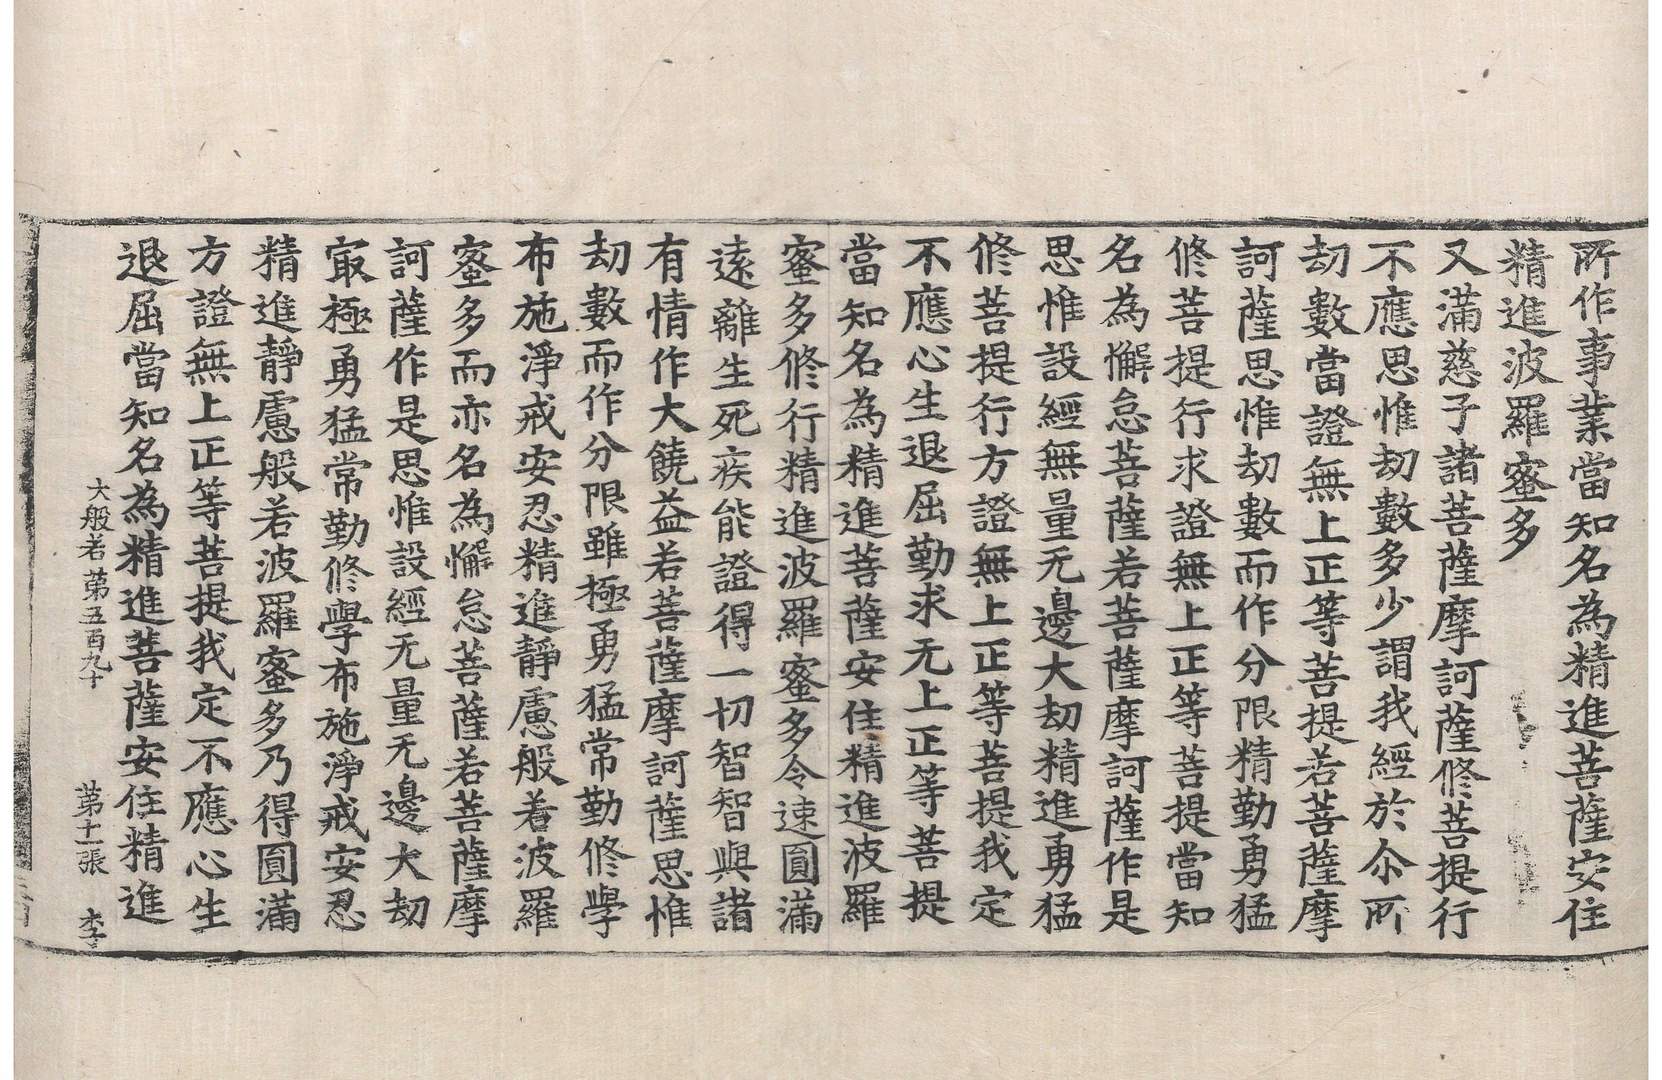 所作事業當知名為精進菩薩安住
精進波羅蜜多
又滿慈子諸菩薩摩訶薩修菩提行
不應思惟劫數多少謂我經於尒所
劫數當證無上正等菩提若菩薩摩
訶薩思惟劫數而作分限精勤勇猛
修菩提行求證無上正等菩提當知
名為懈怠菩薩若菩薩摩訶薩作是
思惟設經無量无邊大劫精進勇猛
修菩提行方證無上正等菩提我定
不應心生退屈勤求无上正等菩提
當知名為精進菩薩安住精進波羅
蜜多修行精進波羅蜜多令速圓滿
遠離生死疾能證得一切智智與諸
有情作大饒益若菩薩摩訶薩思惟
劫數而作分限雖極勇猛常勤修學
布施淨戒安忍精進靜慮般若波羅
蜜多而亦名為懈怠菩薩若菩薩摩
訶薩作是思惟設經无量无邊大劫
㝡極勇猛常勤修學布施淨戒安忍
精進靜慮般若波羅蜜多乃得圓滿
方證無上正等菩提我定不應心生
退屈當知名為精進菩薩安住精進
大般若第五百九十 第十一張 李